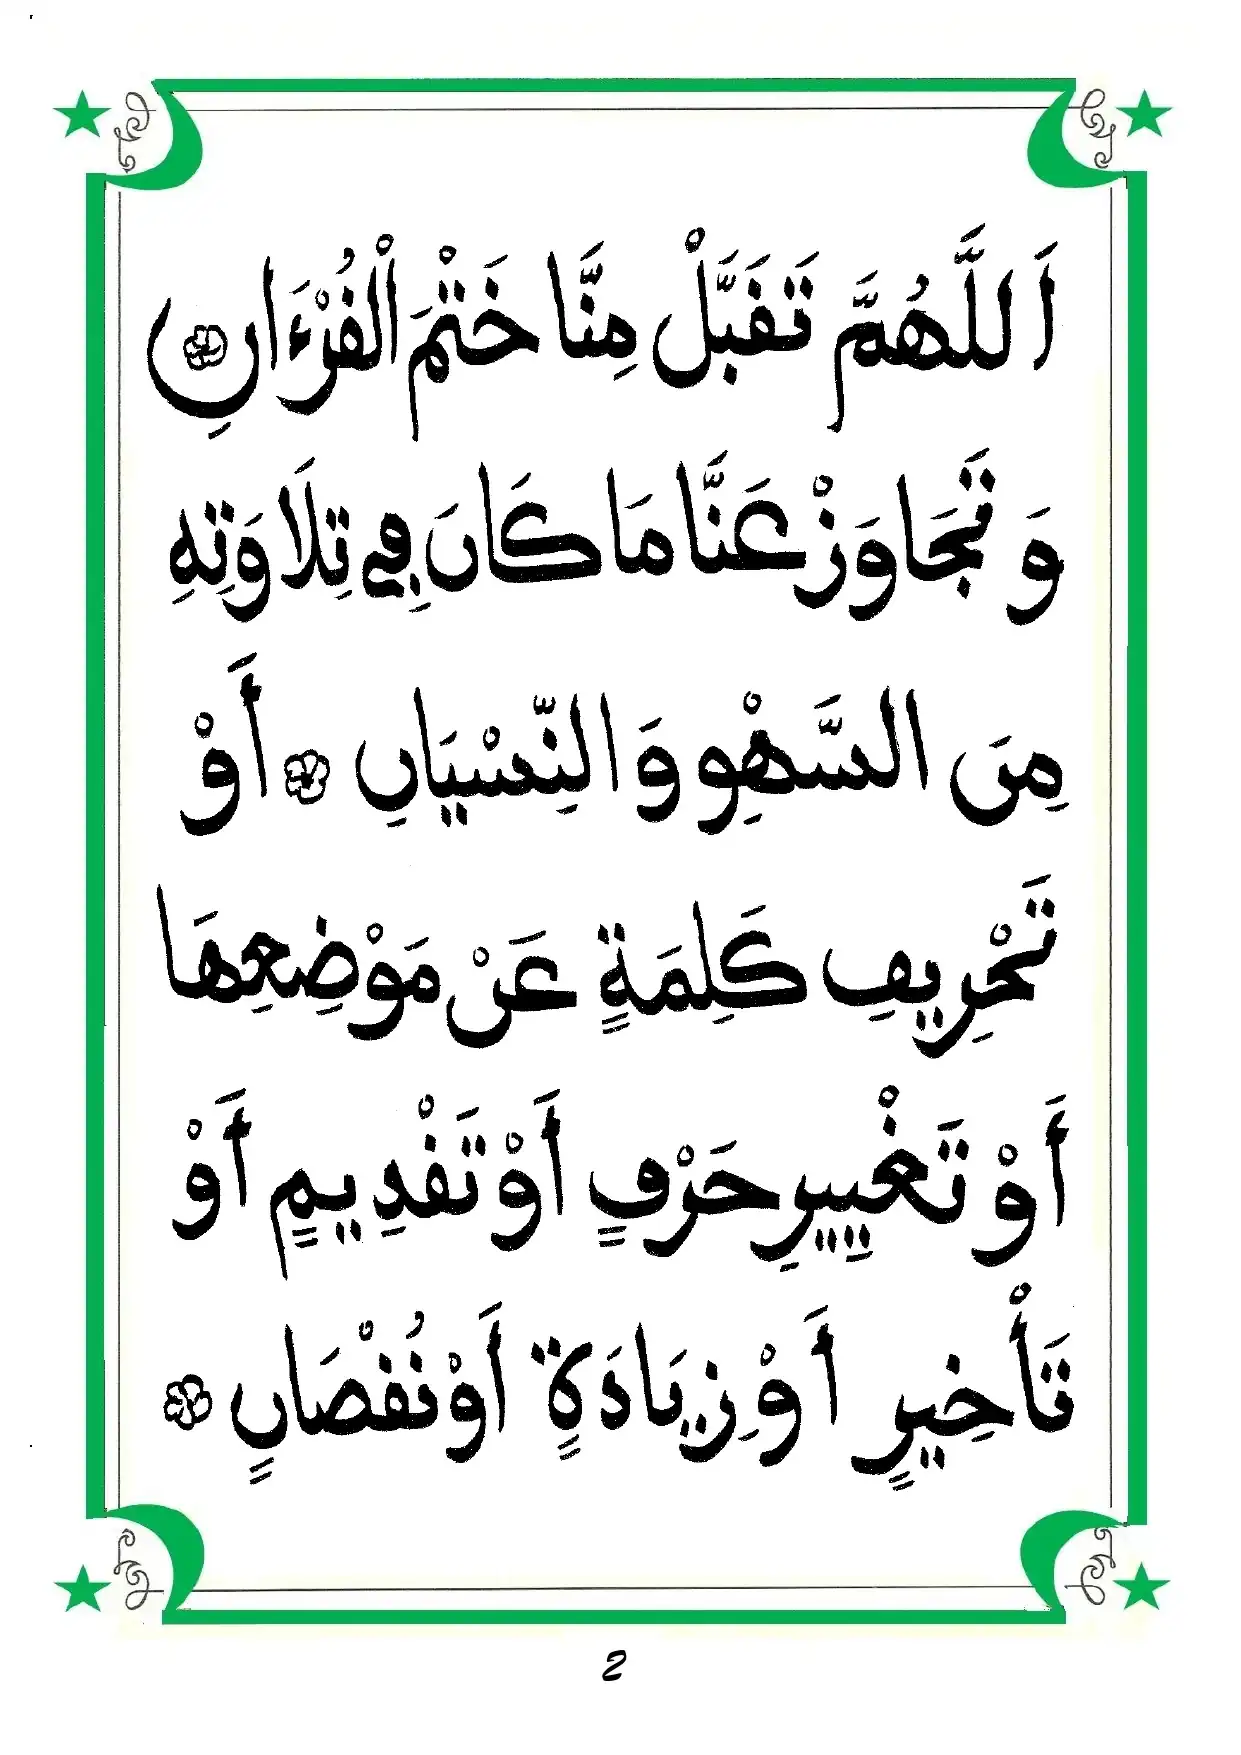 اَللَّهُمَّ تَقَبَّلْ مِنَّا خَتْمَ الْقُرْءَانِ
وَتَجَاوَزْ عَنَّا مَا كَانَ فِي تِلَاوَتِهِ
مِنَ السَّهْوِ وَالنِّسْيَانِ أَوْ
تَحْرِيفِ كَلِمَةٍ عَنْ مَوْضِعِهَا
أَوْ تَغْيِيرِ حَرْفٍ أَوْ تَقْدِيمٍ أَوْ
تَأْخِيرٍ أَوْ زِيَادَةٍ أَوْ نُقْصَانٍ
2